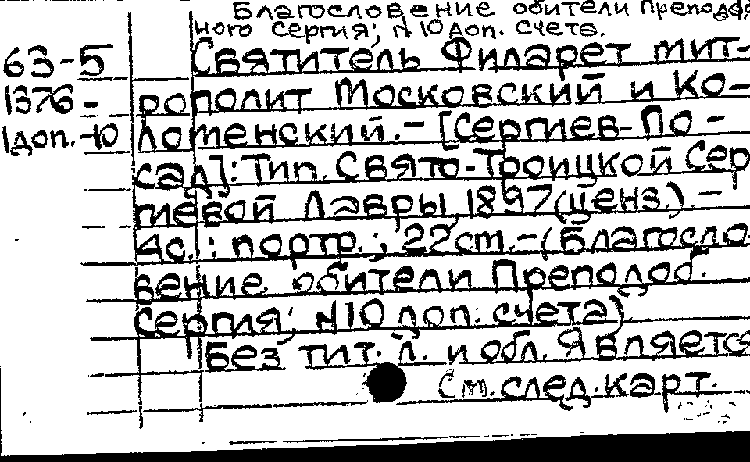 Благословение обители Преподоб
ного Сергия; N 10 доп. счета.
63-5 Святитель Филарет мит-
1376- рополит Московский и Ко-
1 доп.-10 ломенский.- [Сергиев-По-
сад]: Тип. Свято-Троицкой Сер
гиевой Лавры, 1897 (ценз.).-
4с.: портр.; 22 см.-(Благосло
вение обители Преподоб.
Сергия; N 10 доп. счета)
Без тит. л. и обл. Является
См. след. карт.